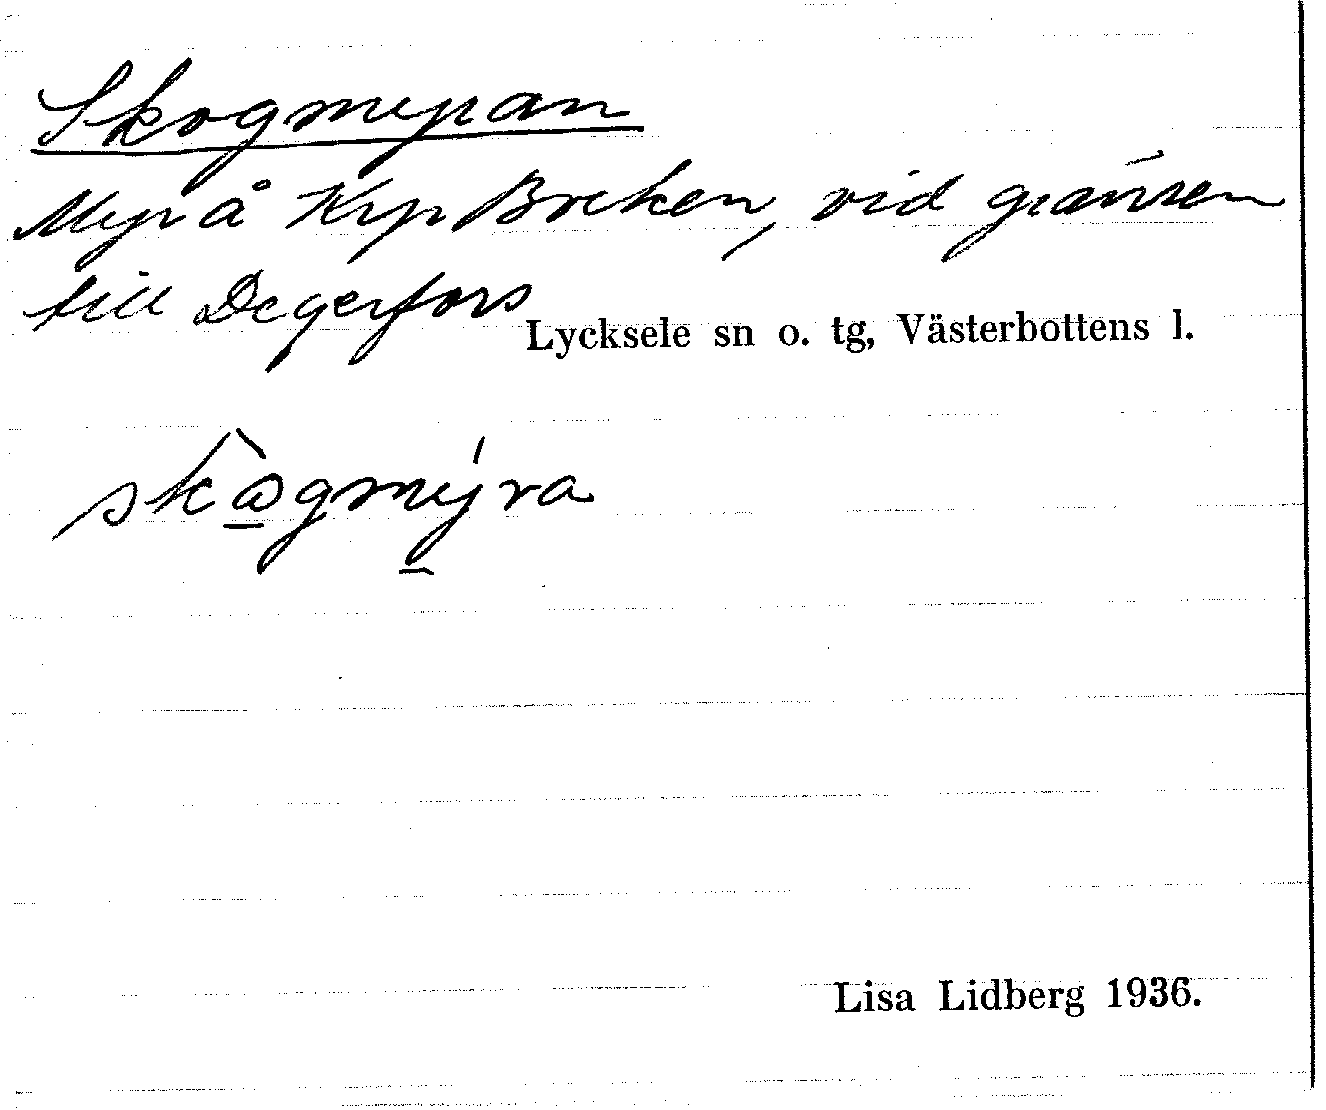 Skogmyran
Myr å Krp Breken, vid gränsen
till Degerfors
Lycksele sn o. tg, Västerbottens l.
skògmýra
Lisa Lidberg 1936.